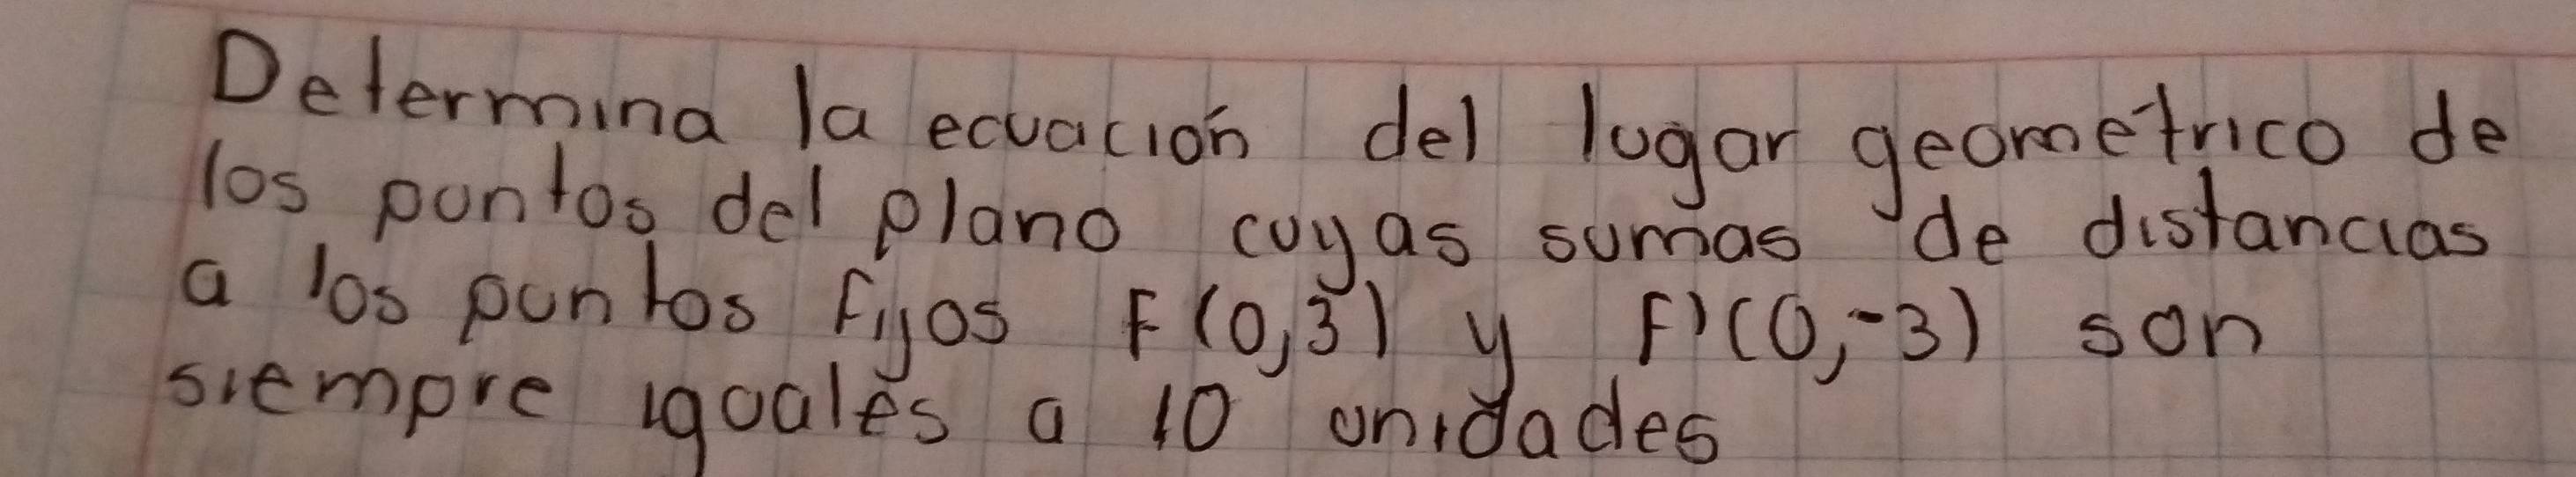 Determina la ecuación del lugar geométrico de
los puntos del plano cuyas sumas de distancias
a los puntos fijos F(0,3) y F'(0,-3) son
siempre iguales a 10 unidades